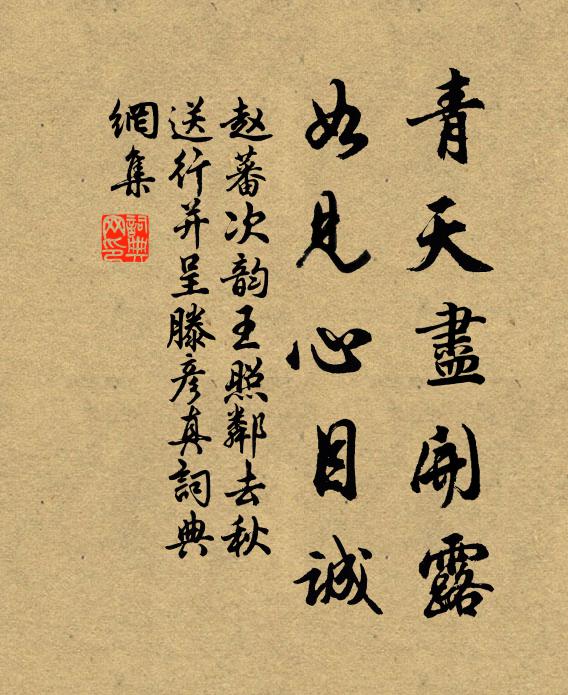 青天盡開露
如見心目誠
赵蕃次韵王照鄰去秋
送行并呈滕彦真詞典
網集
詞典
网印